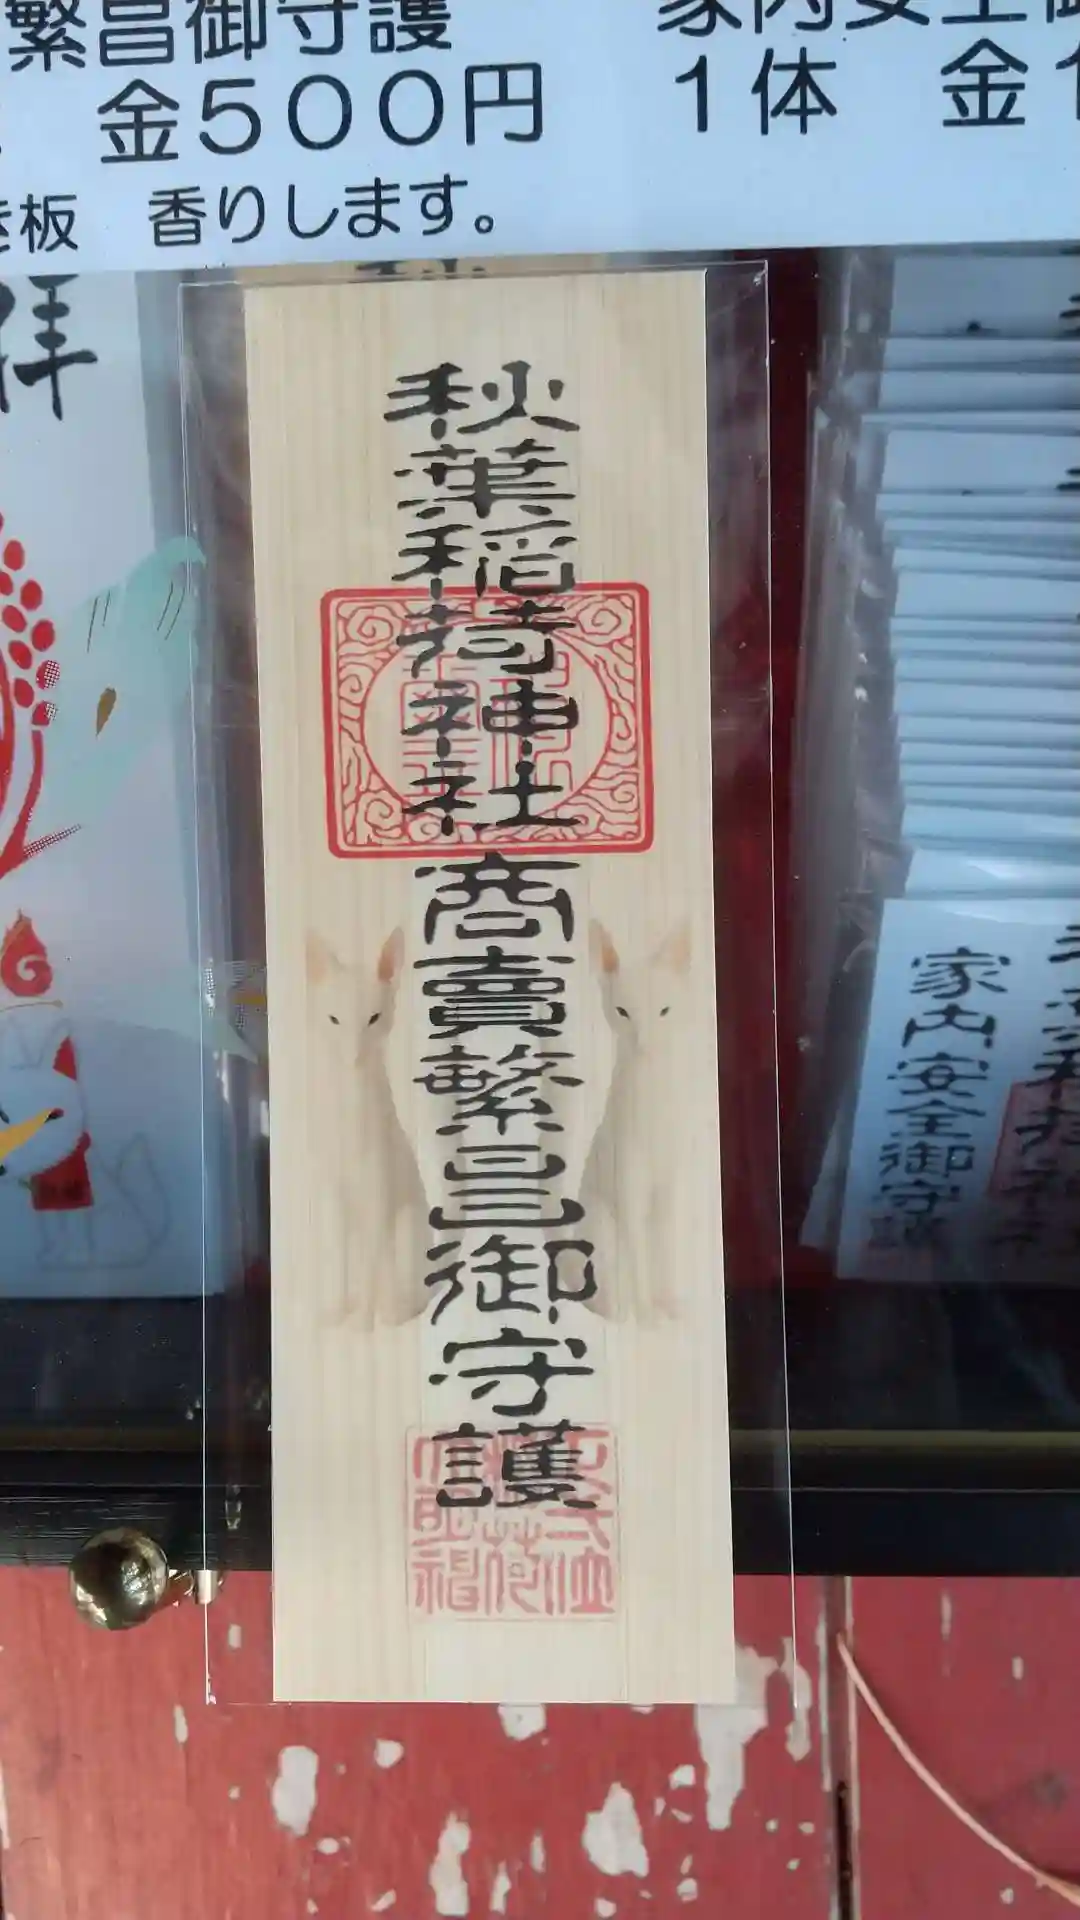 繁昌御守護
金500円
板 香りします。
家内安全
1体 金1
拝
秋葉稲荷神社商賣繁昌御守護
家内安全御守護